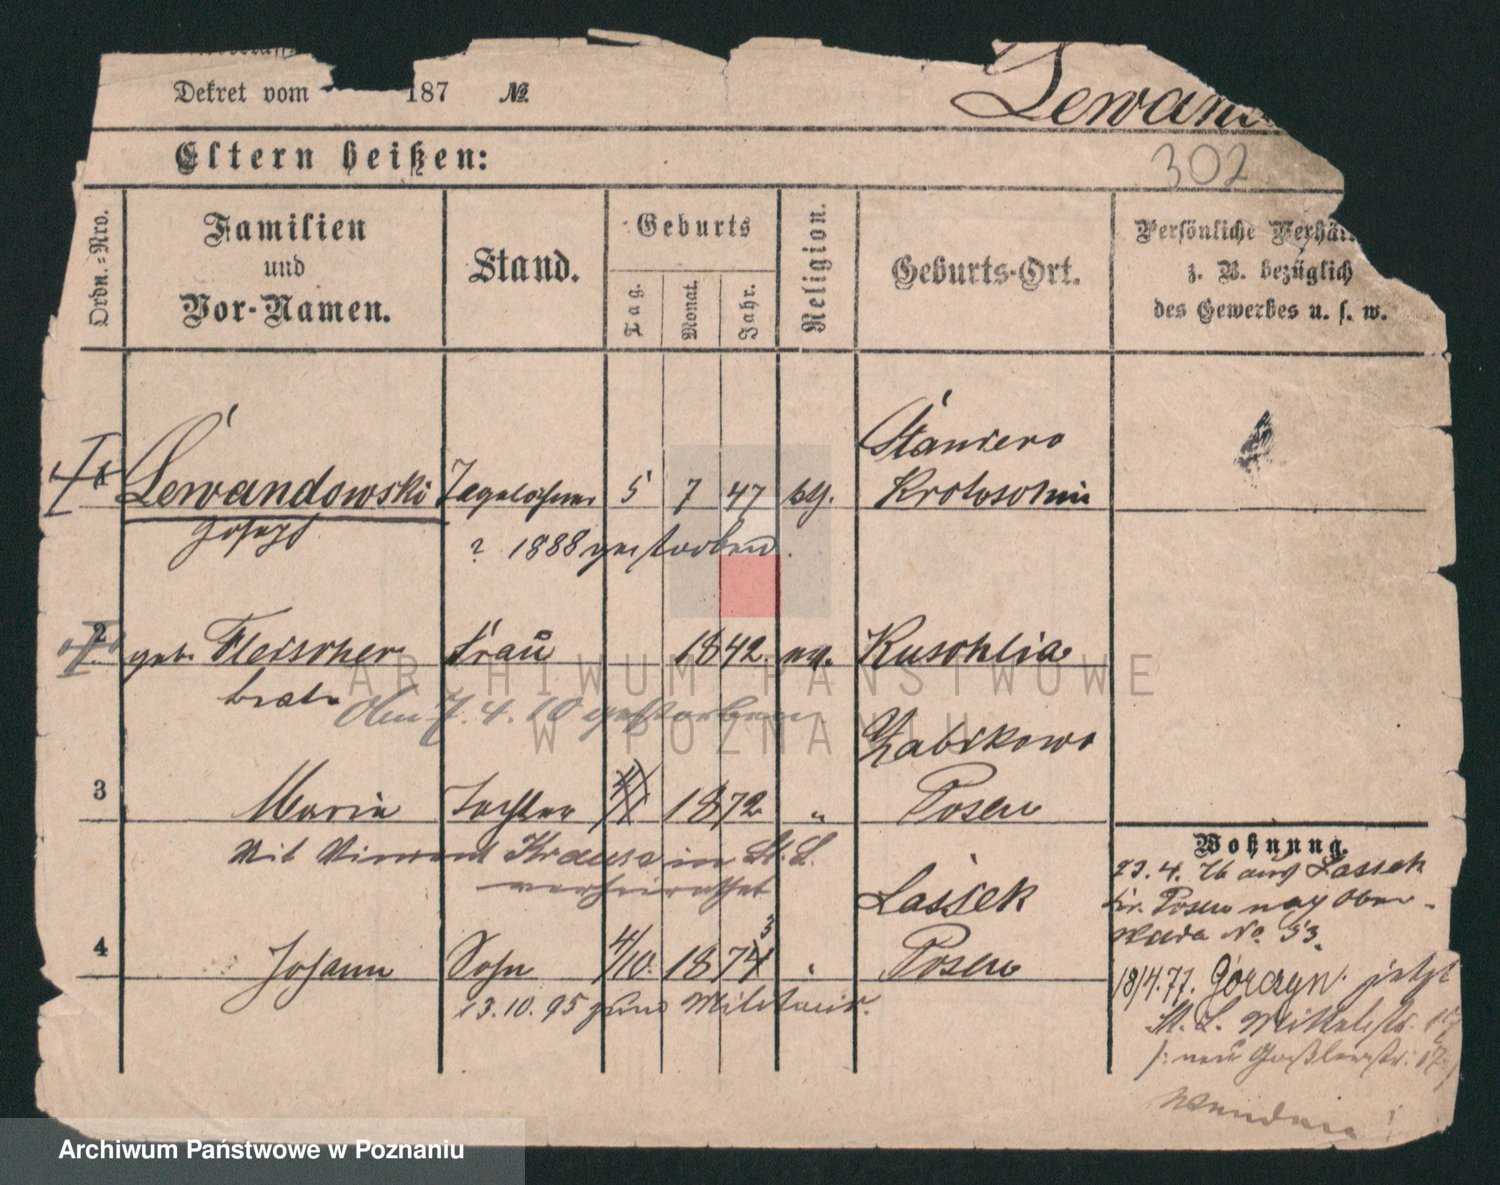 Dekret vom 187 №
Lewand
302
Eltern heißen:
Ordn.-Nro.
Familien
und
Vor-Namen.
Stand.
Geburts
Tag.
Monat.
Jahr.
Religion.
Geburts-Ort.
Persönliche Verhäl
z. B. bezüglich
des Gewerbes u. s. w.
Staniero
1 Lewandowski Tagelöhner 5 7 47 Krotoschin
Joseph
? 1888 gestorben.
2 geb. Fleischer Frau 1842 Kuschlin
Am 7. 4. 10 gestorben
Zabikowo
3 Maria Tochter 1872 " Posen
Mit Vincent Krause in St. L.
verheirathet
Lassek
4 Johann Sohn 4/10. 1874 3 " Posen
13.10.95 zum Militair.
Wohnung.
23. 4. 76 aus Lassek
Kr. Posen nach Ober-
wilda No. 53.
18/4.77. Górczyn jetzt
St. L. Mittelstr. 17
/: neu Gaßlerstr. 17 :/
ARCHIWUM PAŃSTWOWE
W POZNANIU
Archiwum Państwowe w Poznaniu